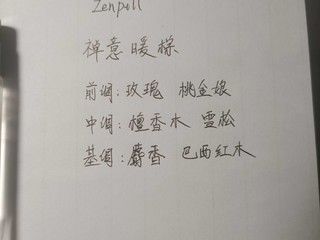 Zenpell
禅意暖棕
前调：玫瑰 桃金娘
中调：檀香木 雪松
基调：麝香 巴西红木